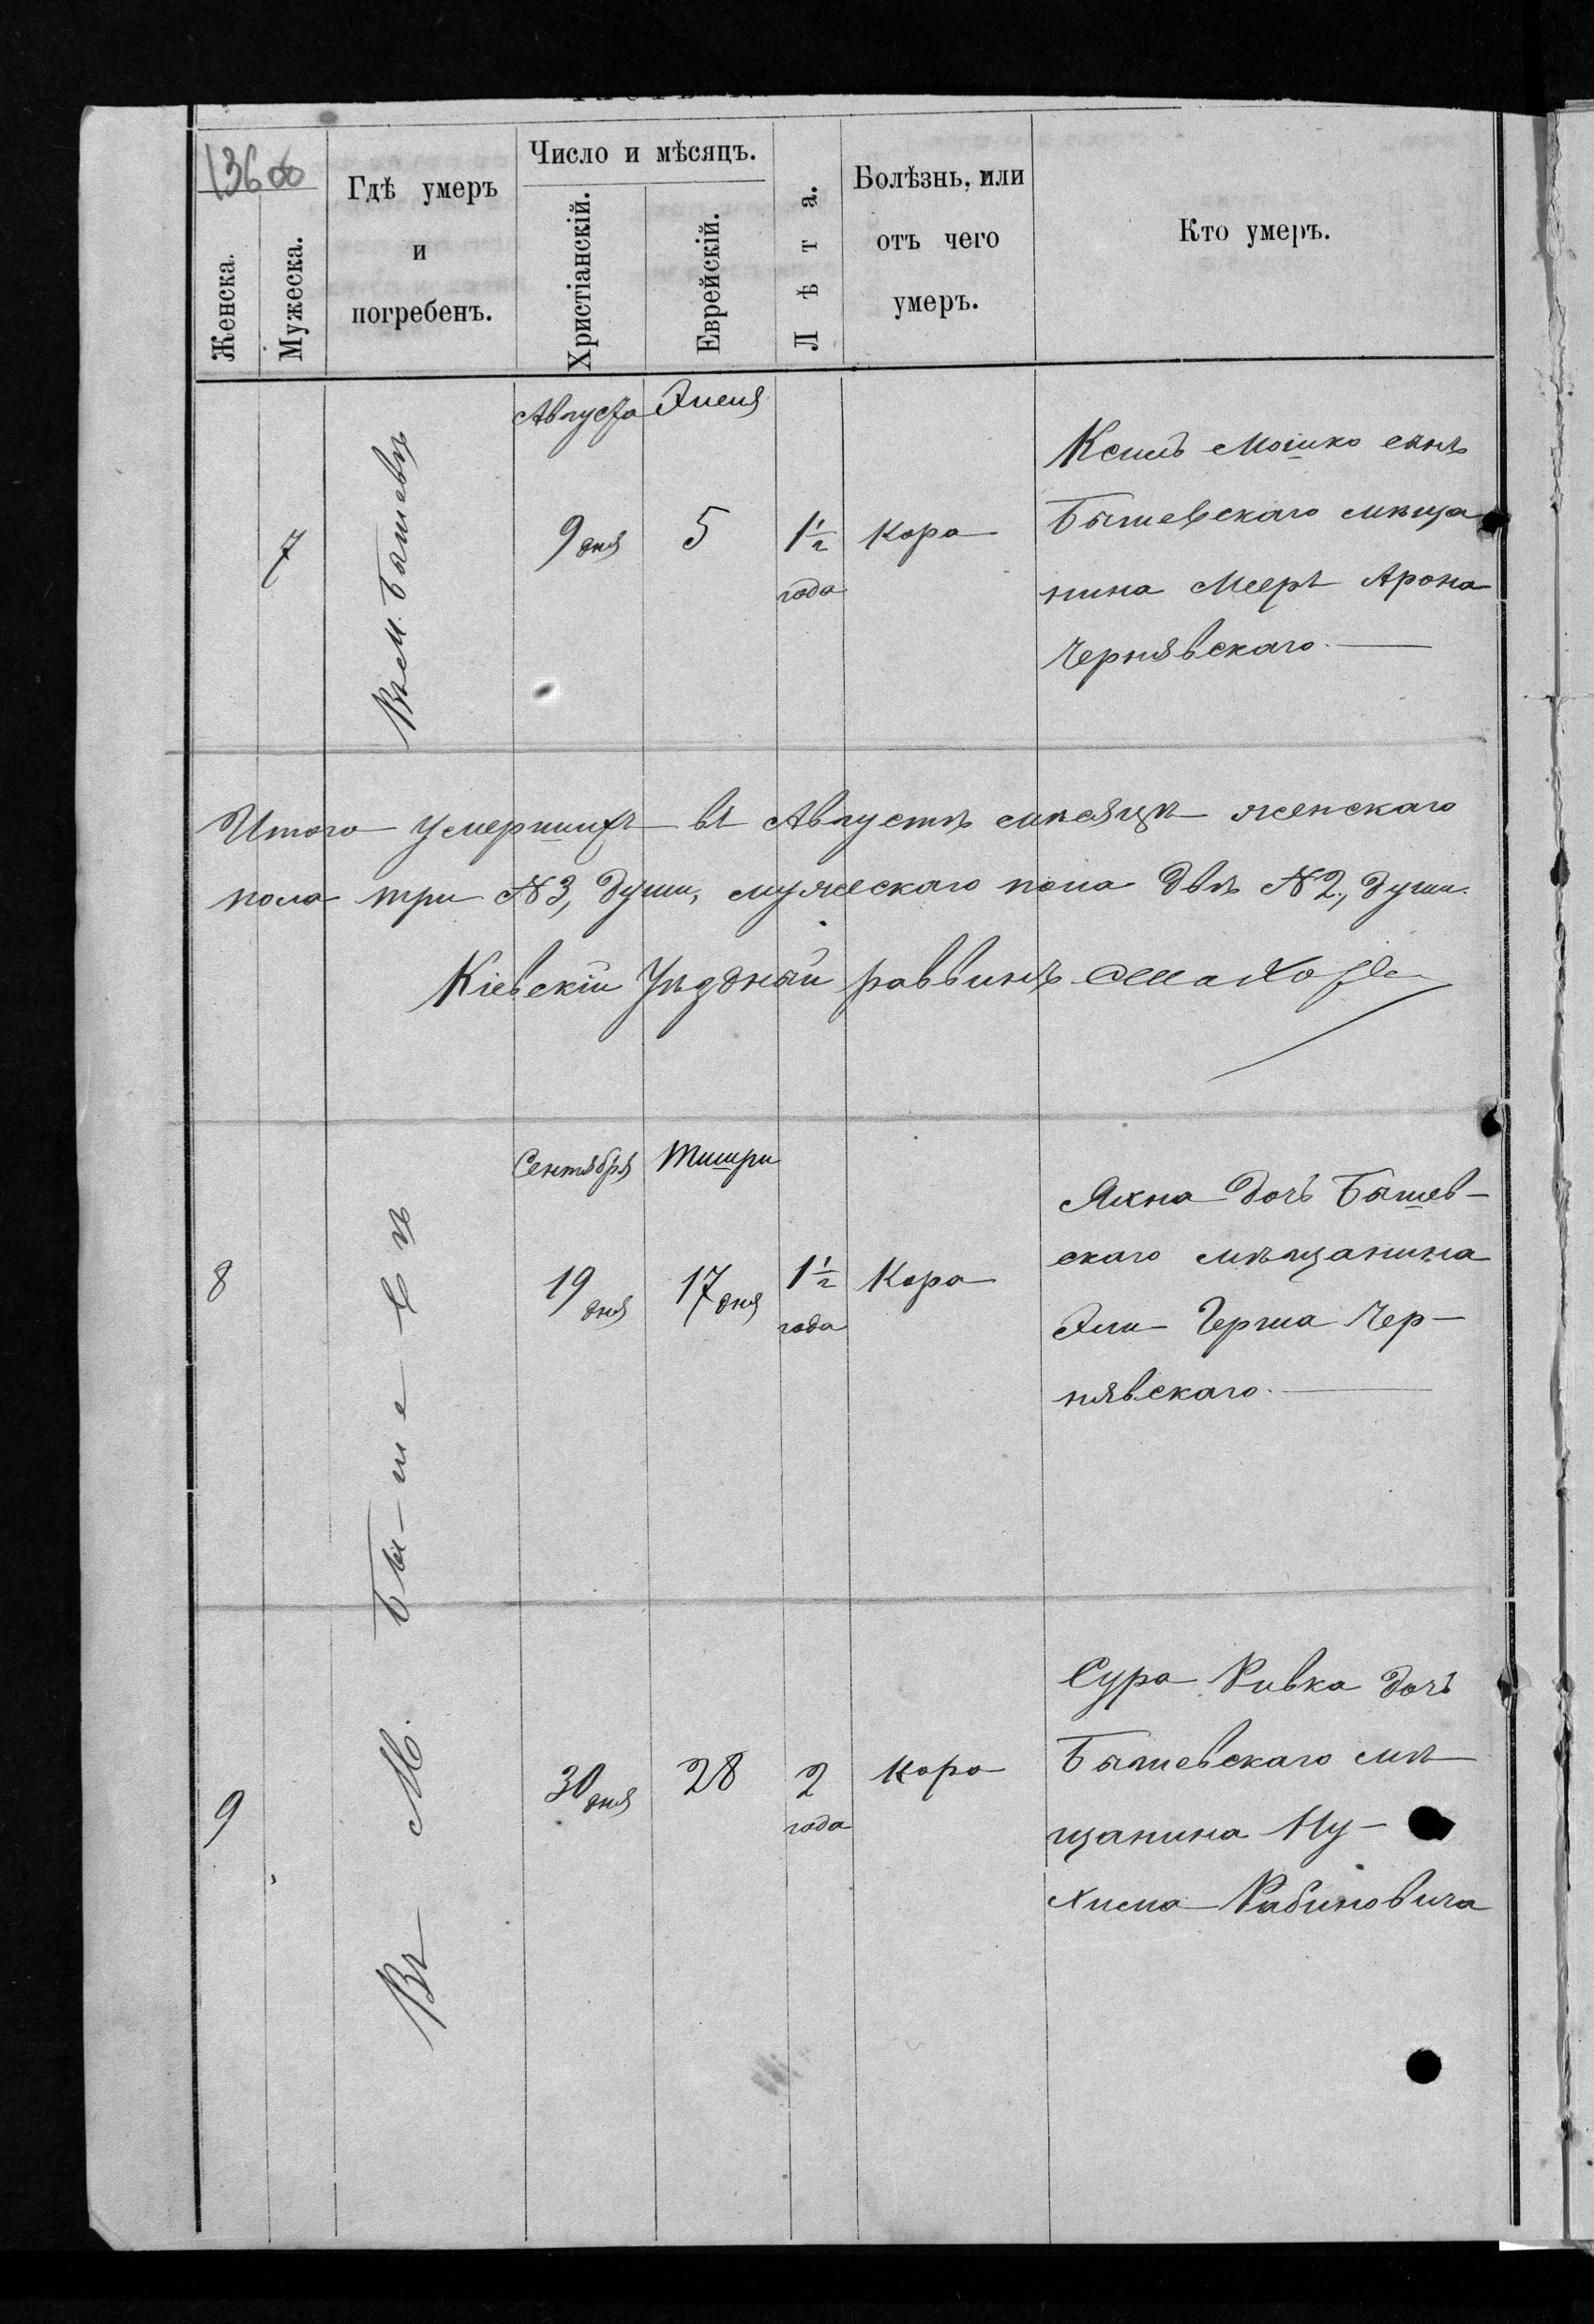 136 об
Женска.
Мужеска.
Гдѣ умеръ
и
погребенъ.
Число и мѣсяцъ.
Христіанскій.
Еврейскій.
Лѣта.
Болѣзнь, или
отъ чего
умеръ.
Кто умеръ.
7
Въ М. Бышевѣ
Августа
9 дня
Элеля
5
1½
года
Кора
Мошко сынъ
Бышевскаго мѣща
нина Меера Арона
Чернявскаго.
Итого умершихъ въ Августѣ мѣсяцѣ женскаго
пола три № 3, души, мужескаго пола двѣ № 2, души.
Кіевскій Уѣздный раввинъ
8
Въ М. Бышевѣ
Сентября
19 дня
Тишри
17 дня
1½
года
Кора
Яхна дочь Бышев-
скаго мѣщанина
Эли Герша Чер-
нявскаго.
9
30 дня
28
2
года
Кора
Сура Ривка дочь
Бышевскаго мѣ-
щанина Ну-
хима Рабиновича